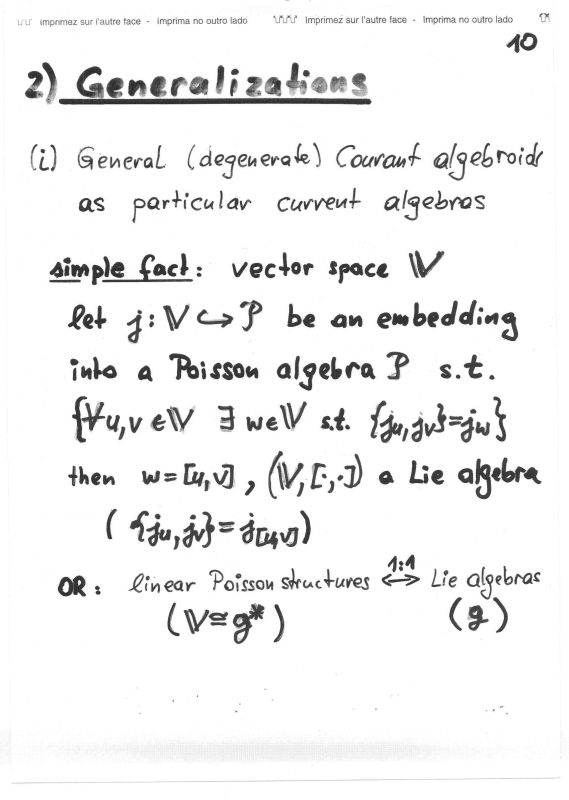 imprimez sur l'autre face - imprima no outro lado imprimez sur l'autre face - imprima no outro lado
10
2) Generalizations
(i) General (degenerate) Courant algebroids
as particular current algebras
simple fact: vector space 𝕍
let j: 𝕍 ↪ 𝒫 be an embedding
into a Poisson algebra 𝒫 s.t.
{∀u,v ∈ 𝕍 ∃ w ∈ 𝕍 s.t. {j_u, j_v} = j_w}
then w = [u,v], (𝕍, [·,·]) a Lie algebra
( {j_u, j_v} = j_[u,v] )
OR: linear Poisson structures ⟷ 1:1 Lie algebras
(𝕍 ≅ g*) (g)